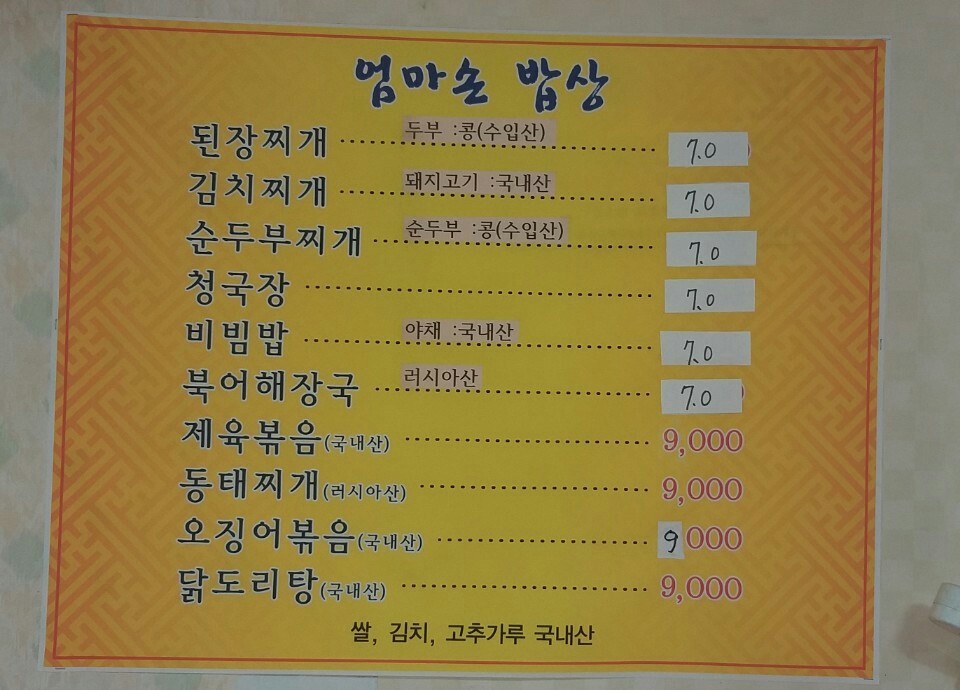 엄마손 밥상
된장찌개 두부 :콩(수입산) 7.0
김치찌개 돼지고기 :국내산 7.0
순두부찌개 순두부 :콩(수입산) 7.0
청국장 7.0
비빔밥 야채 :국내산 7.0
북어해장국 러시아산 7.0
제육볶음(국내산) 9,000
동태찌개(러시아산) 9,000
오징어볶음(국내산) 9000
닭도리탕(국내산) 9,000
쌀, 김치, 고추가루 국내산